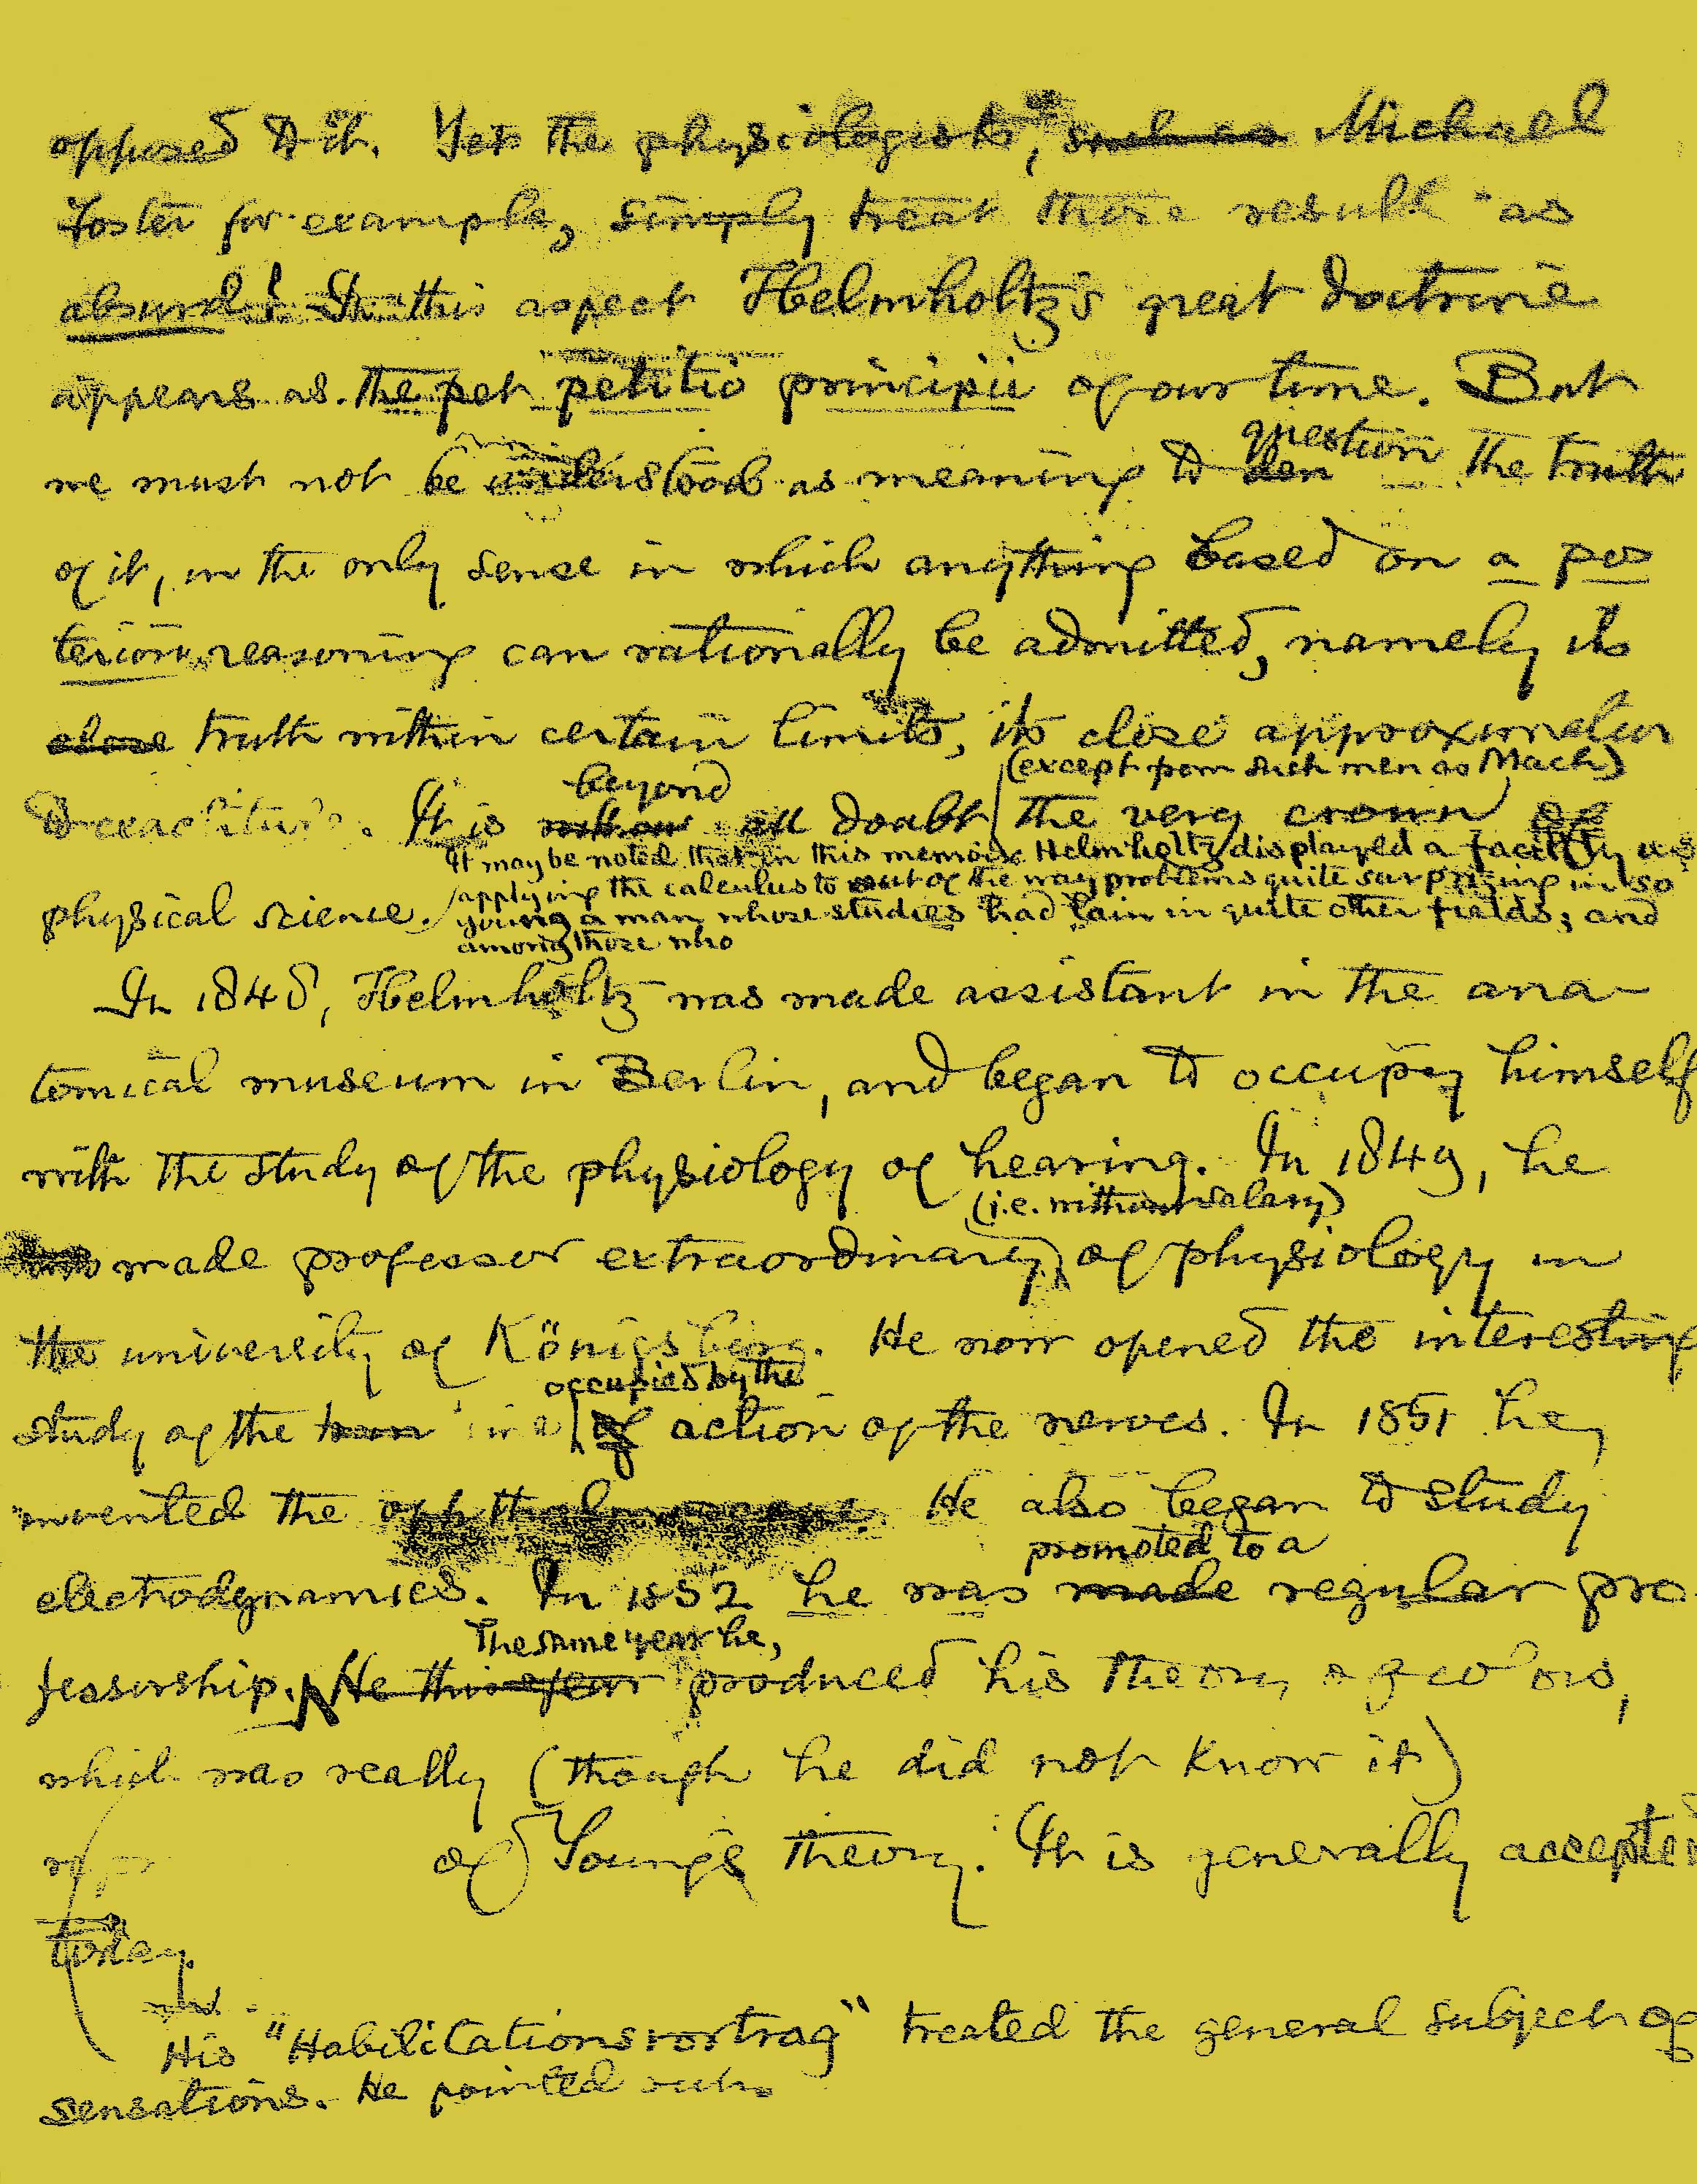 opposed to it. Yet the physiologists, such as Michael
Foster for example, simply treat those result as
absurd! In this aspect Helmholtz's great doctrine
appears as the pet petitio principii of our time. But
question
we must not be understood as meaning to den the truth
of it, in the only sense in which anything based on a pos
teriori reasoning can rationally be admitted, namely its
close truth within certain limits, its close approximation
(except from such men as Mach)
beyond
to exactitude. It is without all doubt the very crown of
It may be noted that in this memoir Helmholtz displayed a facility in
applying the calculus to out of the way problems quite surprising in so
physical science. young a man whose studies had lain in quite other fields; and
among those who
In 1848, Helmholtz was made assistant in the ana-
tomical museum in Berlin, and began to occupy himself
with the study of the physiology of hearing. In 1849, he
(i.e. without salary)
was made professor extraordinary of physiology in
the university of Königsberg. He now opened the interesting
occupied by the
study of the time of action of the nerves. In 1851 he
invented the ophthalmoscope. He also began to study
promoted to a
electrodynamics. In 1852 he was made regular pro-
The same year he,
fessorship. He this year produced his theory of colors,
which was really (though he did not know it)
of Young's theory. It is generally accepted
today.
His "Habilitationsvortrag" treated the general subject of
sensations. He pointed out